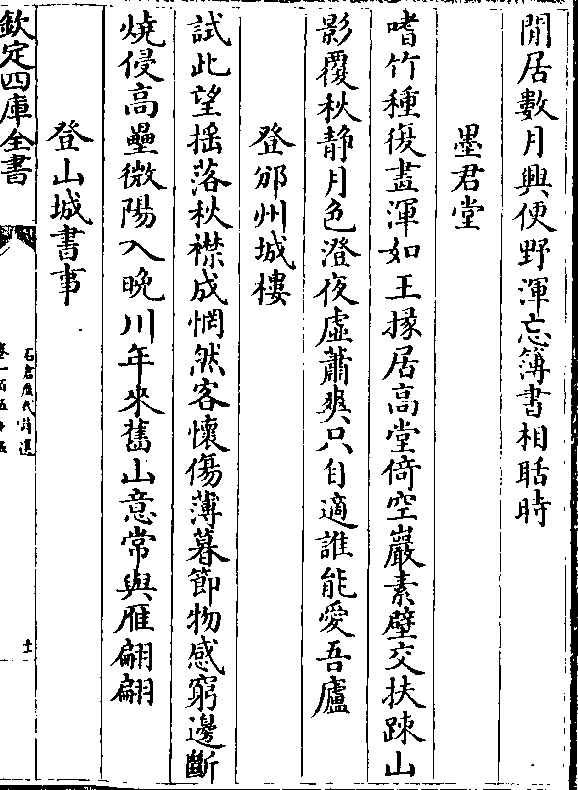 閒居數月興便野渾忘簿書相聒時
墨君堂
嗜竹種復畫渾如王掾居高堂倚空巖素壁交扶踈山
影覆秋静月色澄夜虛蕭爽只自適誰能愛吾廬
登邠州城樓
試此望揺落秋襟成惘然客懷傷薄暮節物感窮邊斷
燒侵高壘微陽入晚川年來舊山意常與雁翩翩
登山城書事
欽定四庫全書
石倉歴代詩選
卷一百五十五
士